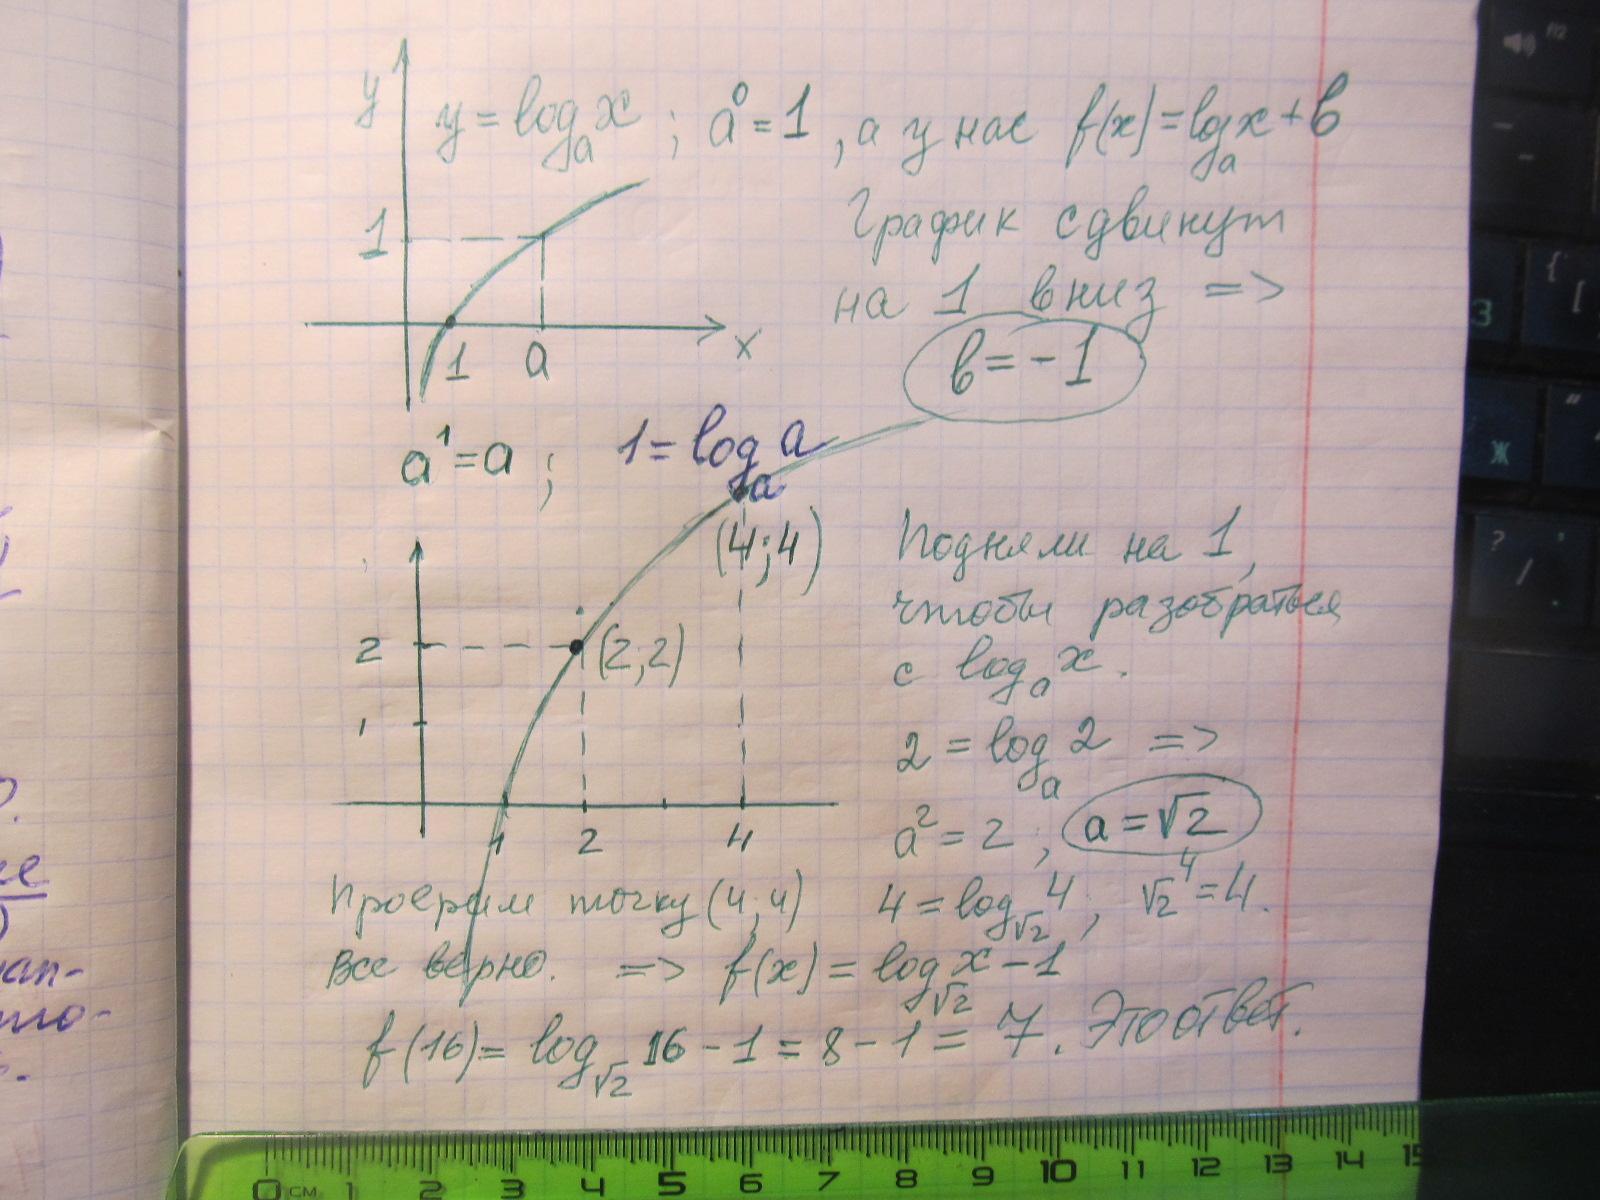 y y = logₐx ; a⁰ = 1 , а у нас f(x) = logₐx + b
График сдвинут
1
на 1 вниз =>
1 a x
b = -1
a¹ = a ; 1 = logₐa
(4;4)
Подняли на 1,
чтобы разобраться
2 (2;2)
с logₐx.
1
2 = logₐ2 =>
1 2 4
a² = 2 ; a = √2
Проверим точку (4;4) 4 = log_√2 4 ; √2⁴ = 4.
Все верно. => f(x) = log_√2 x - 1
f(16) = log_√2 16 - 1 = 8 - 1 = 7. Это ответ.
0 см 1 2 3 4 5 6 7 8 9 10 11 12 13 14 15